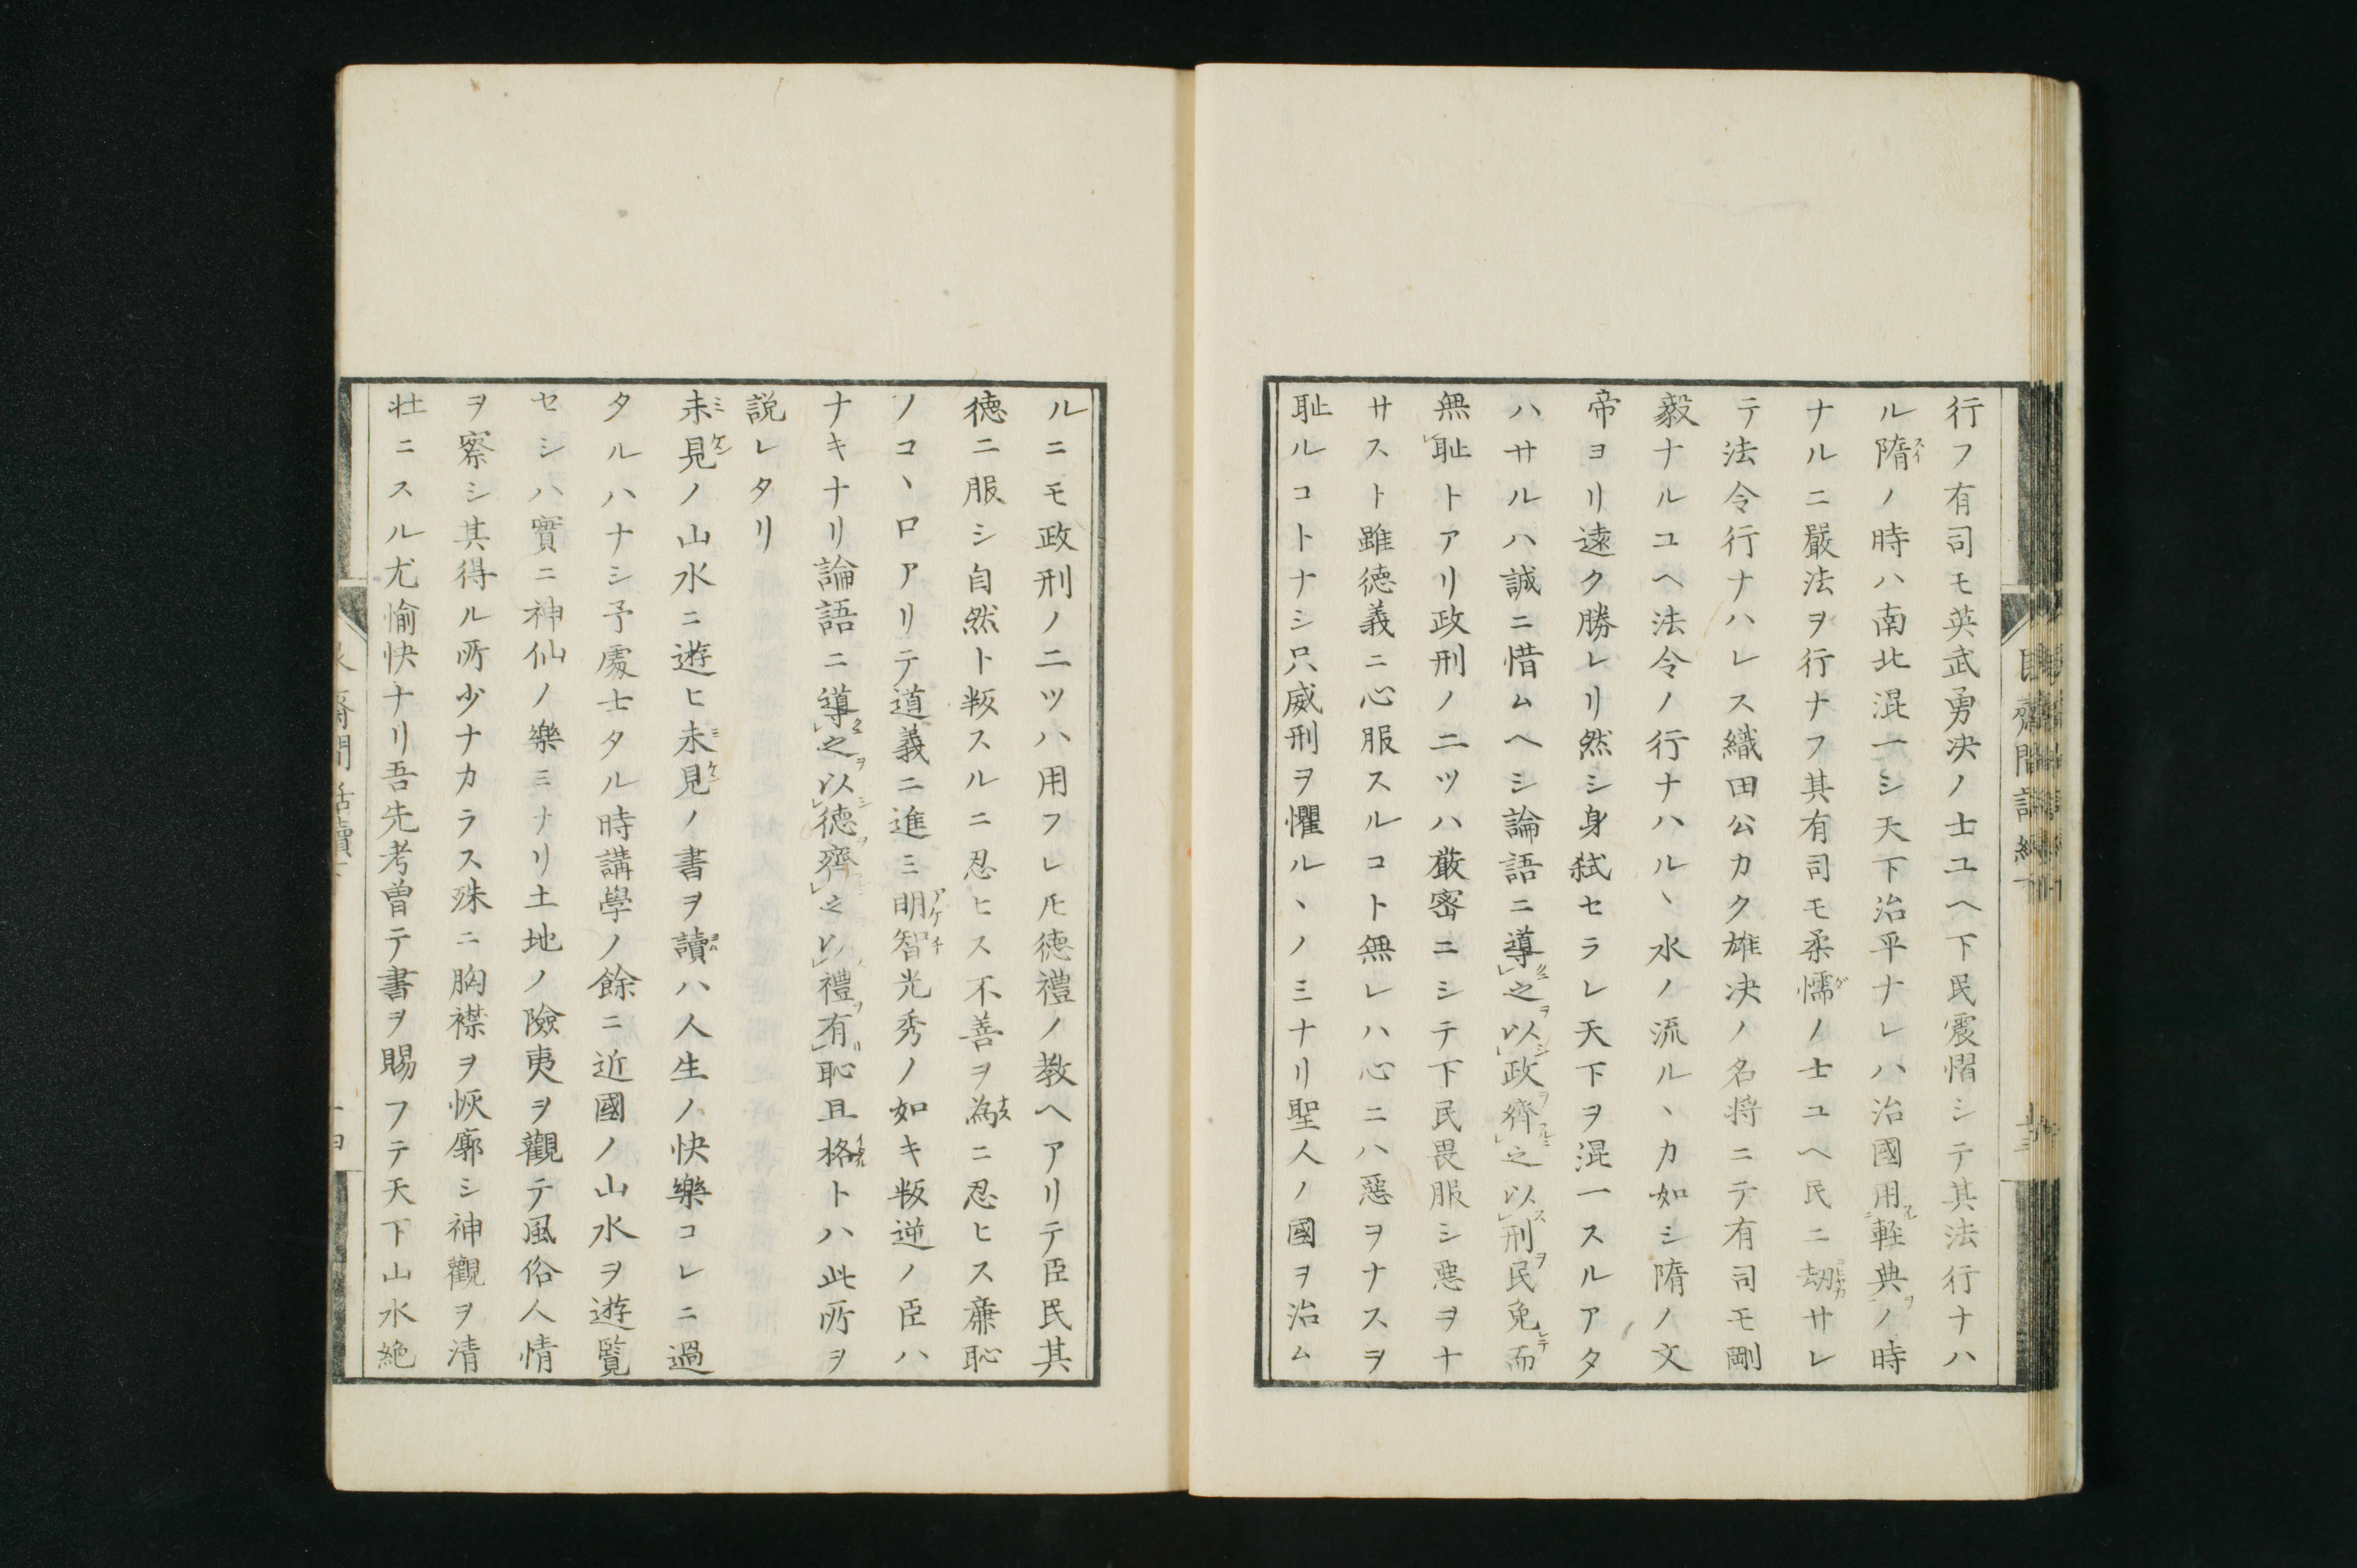 行フ有司モ英武勇决ノ士ユヘ下民震慴シテ其法行ナハ
ル隋ノ時ハ南北混一シ天下治平ナレハ治國用軽典ノ時
ナルニ嚴法ヲ行ナフ其有司モ柔懦ノ士ユヘ民ニ劫サレ
テ法令行ナハレス織田公カク雄决ノ名将ニテ有司モ剛
毅ナルユヘ法令ノ行ナハルヽ水ノ流ルヽカ如シ隋ノ文
帝ヨリ遠ク勝レリ然シ身弑セラレ天下ヲ混一スルアタ
ハサルハ誠ニ惜ムヘシ論語ニ導之以政齊之以刑民免而
無耻トアリ政刑ノ二ツハ嚴密ニシテ下民畏服シ悪ヲナ
サスト雖徳義ニ心服スルコト無レハ心ニハ惡ヲナスヲ
耻ルコトナシ只威刑ヲ懼ルヽノミナリ聖人ノ國ヲ治ム
ルニモ政刑ノ二ツハ用フレ𪜈徳禮ノ教ヘアリテ臣民其
徳ニ服シ自然ト叛スルニ忍ヒス不善ヲ為ニ忍ヒス廉恥
ノコヽロアリテ道義ニ進ミ明智光秀ノ如キ叛逆ノ臣ハ
ナキナリ論語ニ導之以徳齊之以禮有恥且格トハ此所ヲ
説レタリ
未見ノ山水ニ遊ヒ未見ノ書ヲ讀ハ人生ノ快樂コレニ過
タルハナシ予處士タル時講學ノ餘ニ近國ノ山水ヲ遊覧
セシハ實ニ神仙ノ樂ミナリ土地ノ險夷ヲ觀テ風俗人情
ヲ察シ其得ル所少ナカラス殊ニ胸襟ヲ恢廓シ神觀ヲ清
壮ニスル尤愉快ナリ吾先考曽テ書ヲ賜フテ天下山水絶